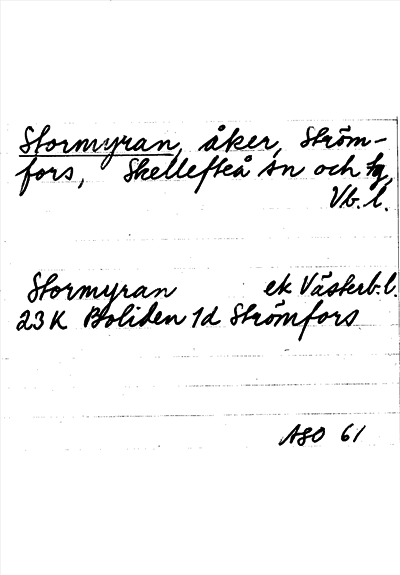 Stormyran, åker, Ström-
fors, Skellefteå sn och tg,
Vb. l.
Stormyran ek Västerb. l.
23K Boliden 1d Strömfors
ASO 61